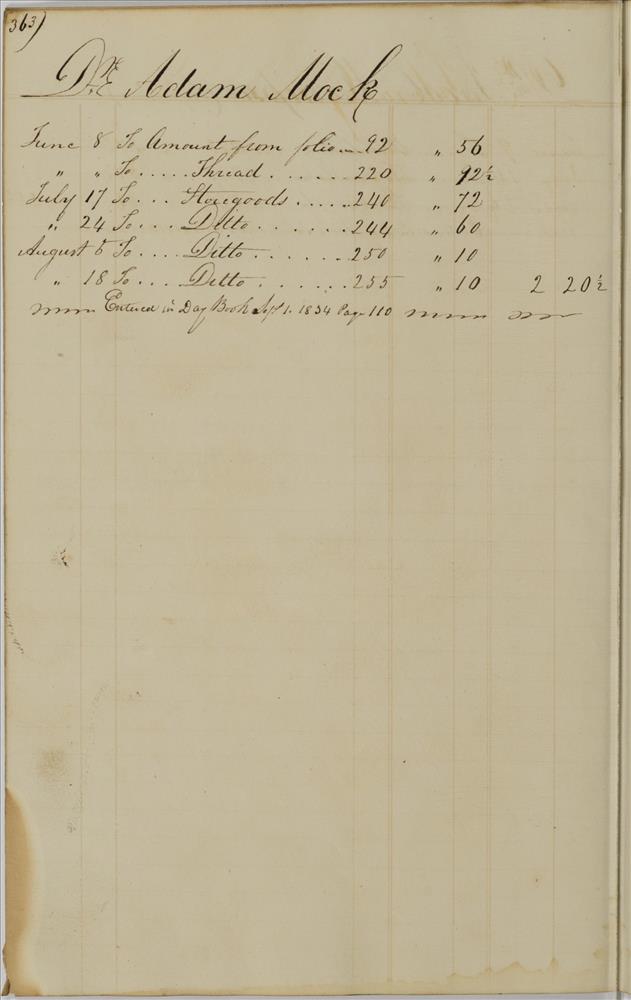 363)
Dr. Adam Mock
June 8 To Amount from folio .. 92 " 56
" " To ..... Thread ...... 220 " 12½
July 17 To ... Storegoods ..... 240 " 72
" 24 To ... Ditto ...... 244 " 60
August 5 To .... Ditto ...... 250 " 10
" 18 To .... Ditto ...... 255 " 10 2 20½
Entered in Day Book Sept 1. 1834 Page 110